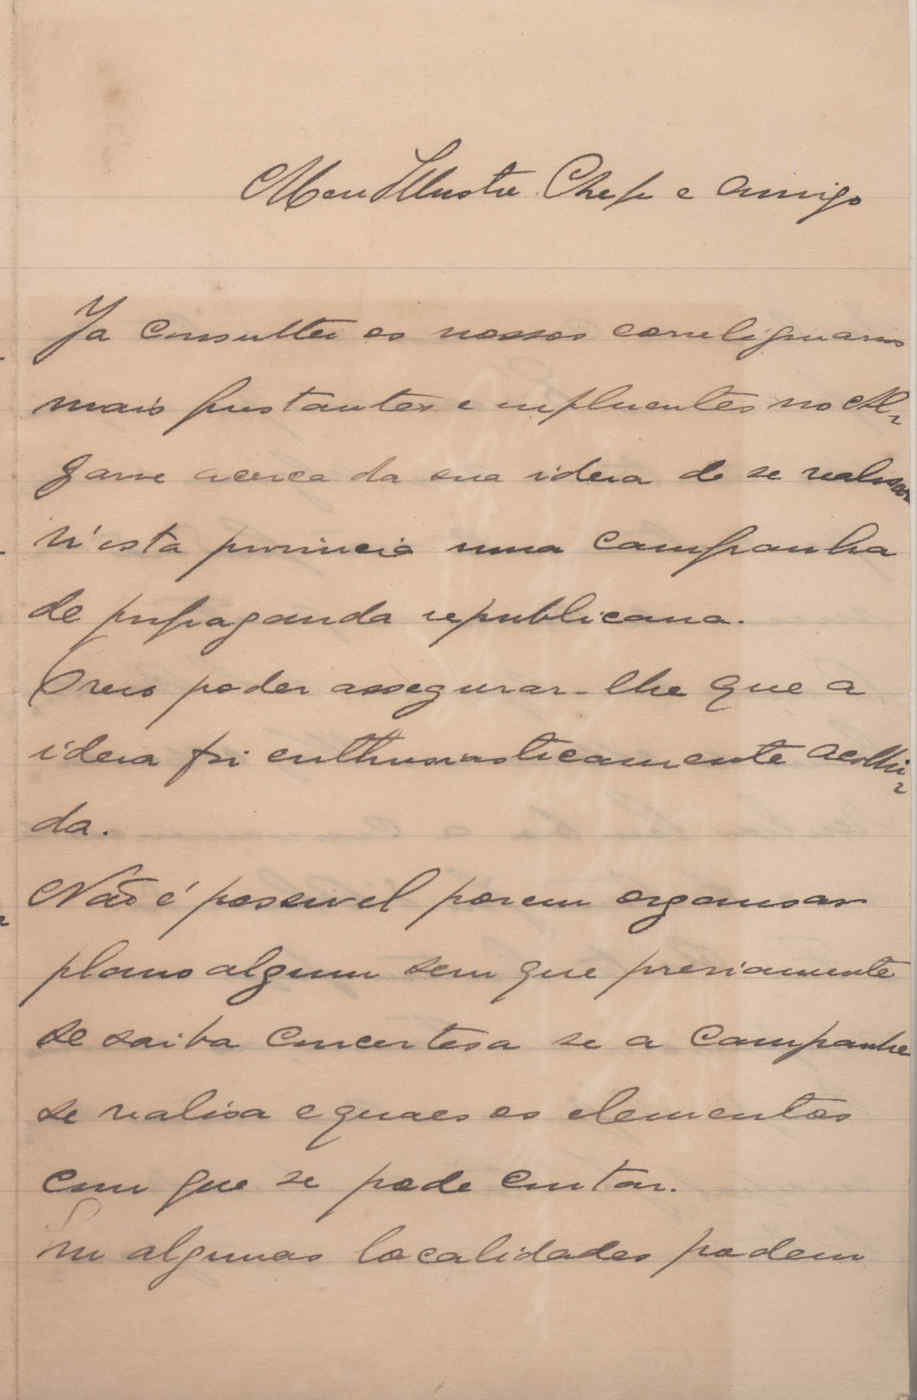 Meu Illustre Chefe e amigo
Ja consultei os nossos correligionarios
mais prestantes e influentes no Al-
garve acerca da sua ideia de se realisar
n'esta provincia uma campanha
de propaganda republicana.
Creio poder assegurar-lhe que a
ideia foi enthusiasticamente acolhi-
da.
Não é possivel porem organisar
plano algum sem que previamente
se saiba com certesa se a campanha
se realisa e quaes os elementos
com que se pode contar.
Em algumas localidades podem